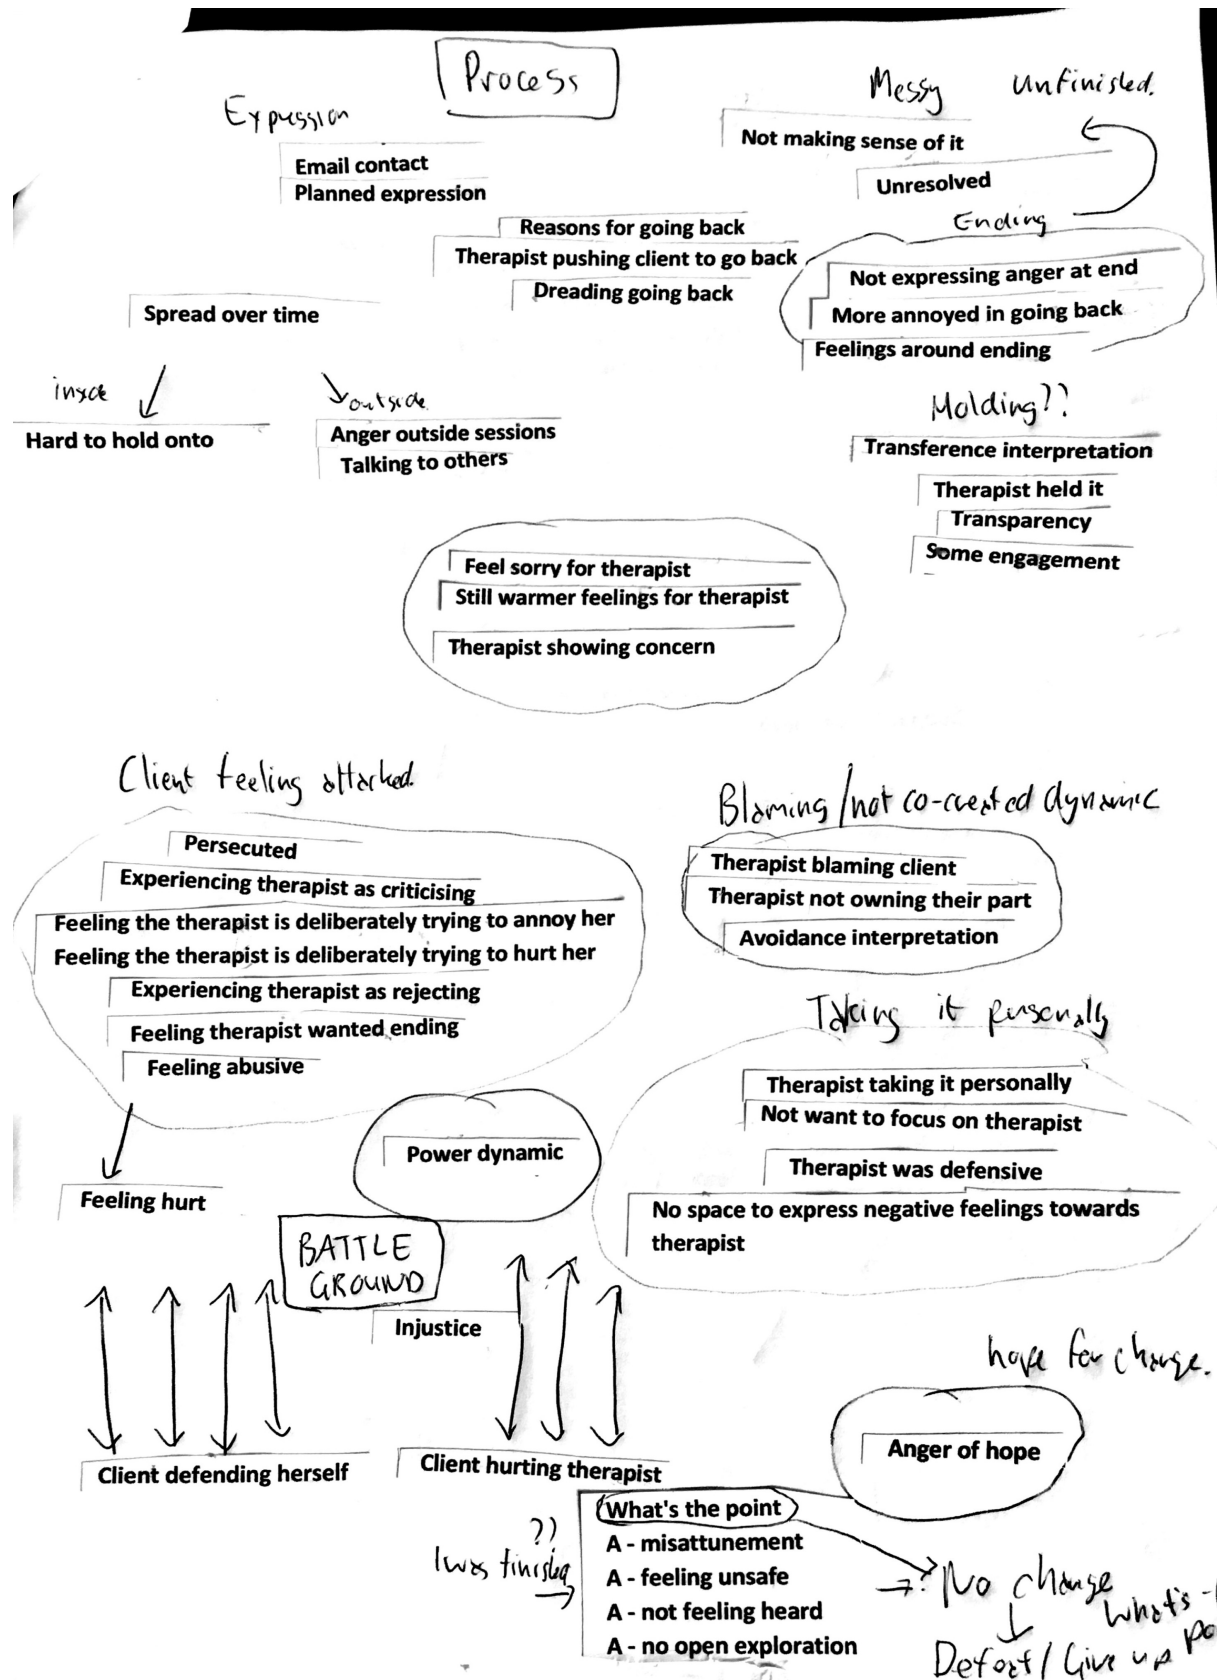 Process
Expression
Messy
Unfinished.
Not making sense of it
Email contact
Planned expression
Unresolved
Ending
Reasons for going back
Therapist pushing client to go back
Dreading going back
Not expressing anger at end
More annoyed in going back
Feelings around ending
Spread over time
inside
outside
Hard to hold onto
Anger outside sessions
Talking to others
Molding??
Transference interpretation
Therapist held it
Transparency
Some engagement
Feel sorry for therapist
Still warmer feelings for therapist
Therapist showing concern
Client feeling attacked.
Persecuted
Experiencing therapist as criticising
Feeling the therapist is deliberately trying to annoy her
Feeling the therapist is deliberately trying to hurt her
Experiencing therapist as rejecting
Feeling therapist wanted ending
Feeling abusive
Blaming/not co-created dynamic
Therapist blaming client
Therapist not owning their part
Avoidance interpretation
Taking it personally
Therapist taking it personally
Not want to focus on therapist
Therapist was defensive
No space to express negative feelings towards
therapist
Power dynamic
Feeling hurt
BATTLE
GROUND
Injustice
Client defending herself
Client hurting therapist
hope for change.
Anger of hope
What's the point
A - misattunement
A - feeling unsafe
A - not feeling heard
A - no open exploration
??
I was finished
? No change
What's
Defeat/Give up